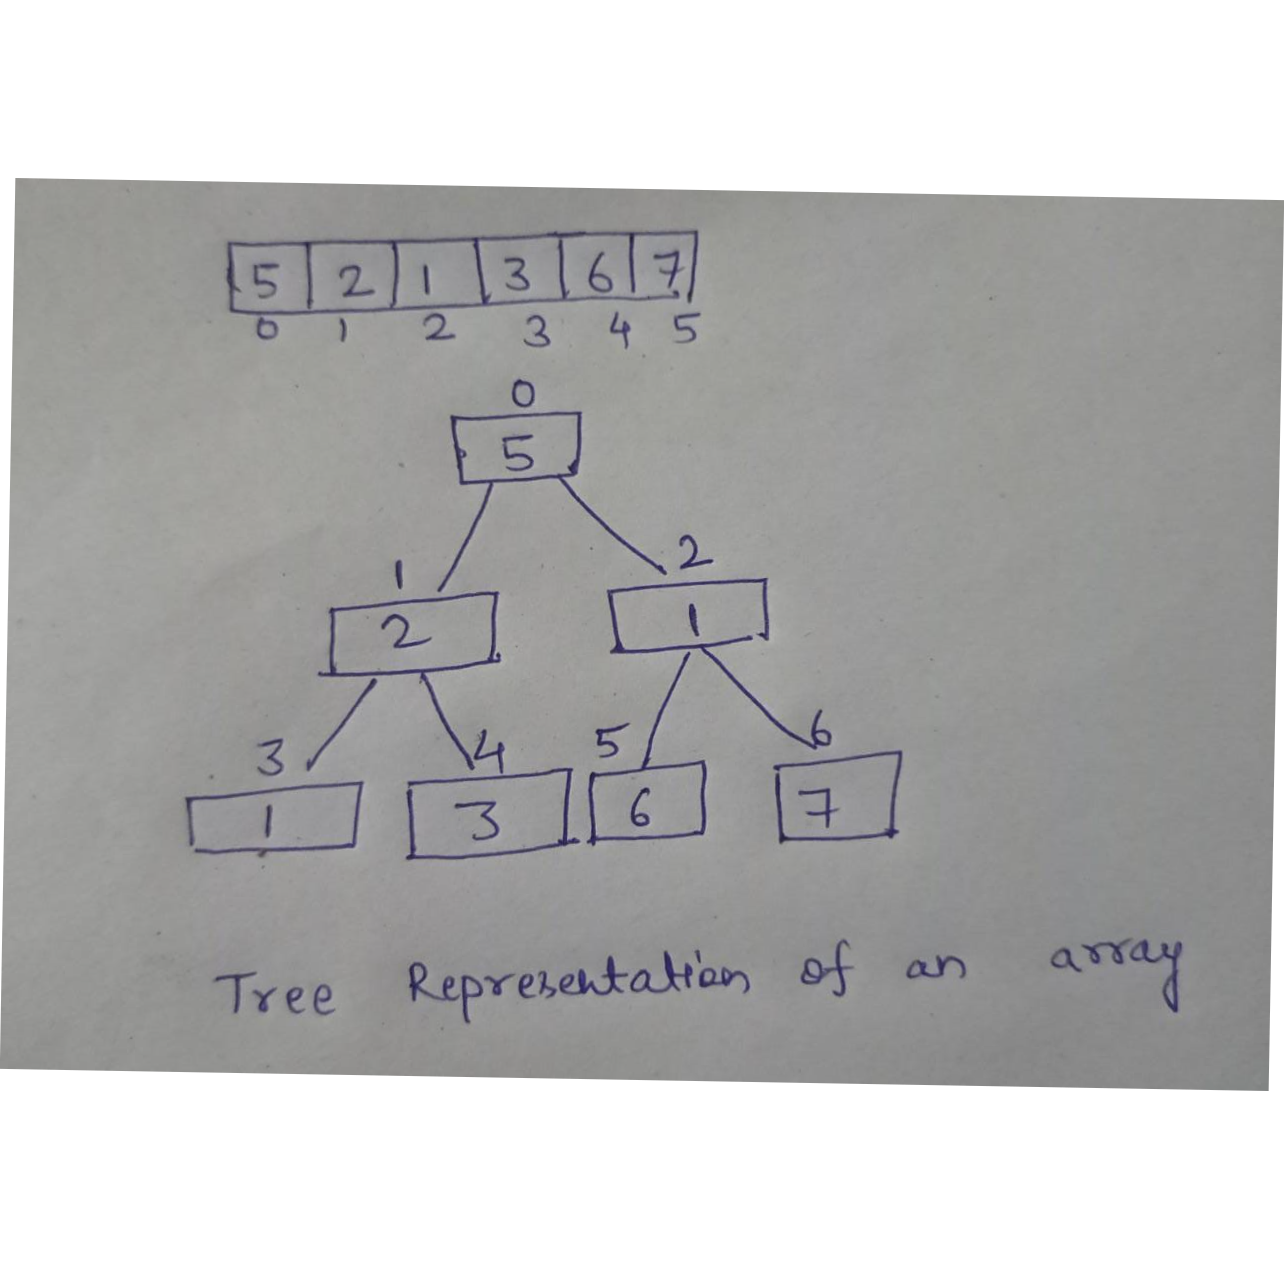 5 2 1 3 6 7
0 1 2 3 4 5
0
5
1 2
2 1
3 4 5 6
1 3 6 7
Tree Representation of an array